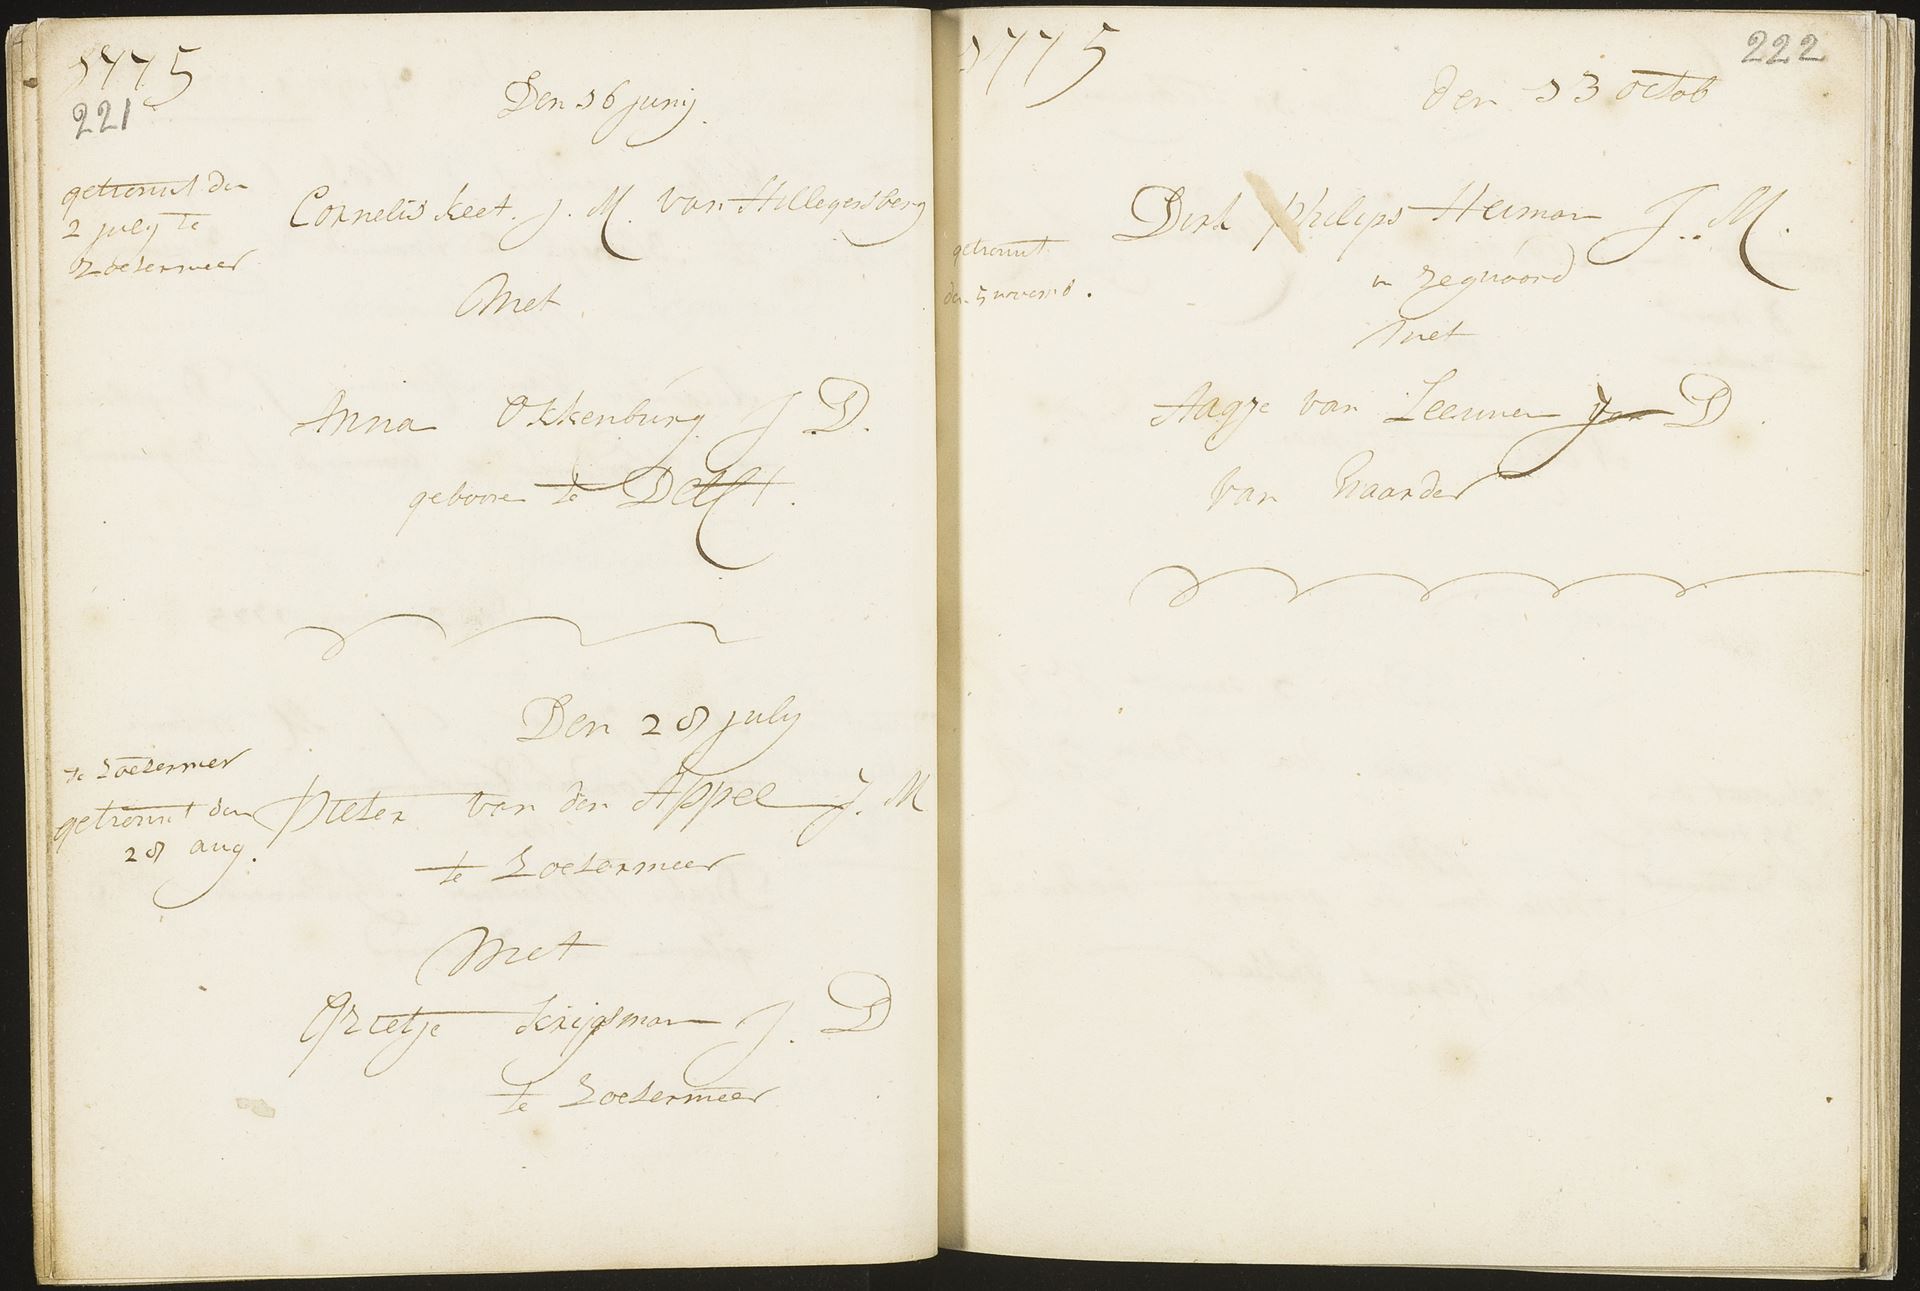 1775
221
Den 16 junij
getrouwt den
2 july te
Zoetermeer
Cornelis Keet. J. M. van Hillegersberg
Met
Anna Okkenburg J D.
gebooren te Delft.
Den 28 july
te Zoetermeer
getrouwt den
28 aug.
Pieter van den Appel J. M
te Zoetermeer
Met
Grietje Krijgsman J. D
te Zoetermeer
1775
222
den 13 octob
getrouwt
den 5 novemb.
Dirk Philips Heiman J. M.
in Zegwaard
met
Aagje van Leeuwen D
van Waarder